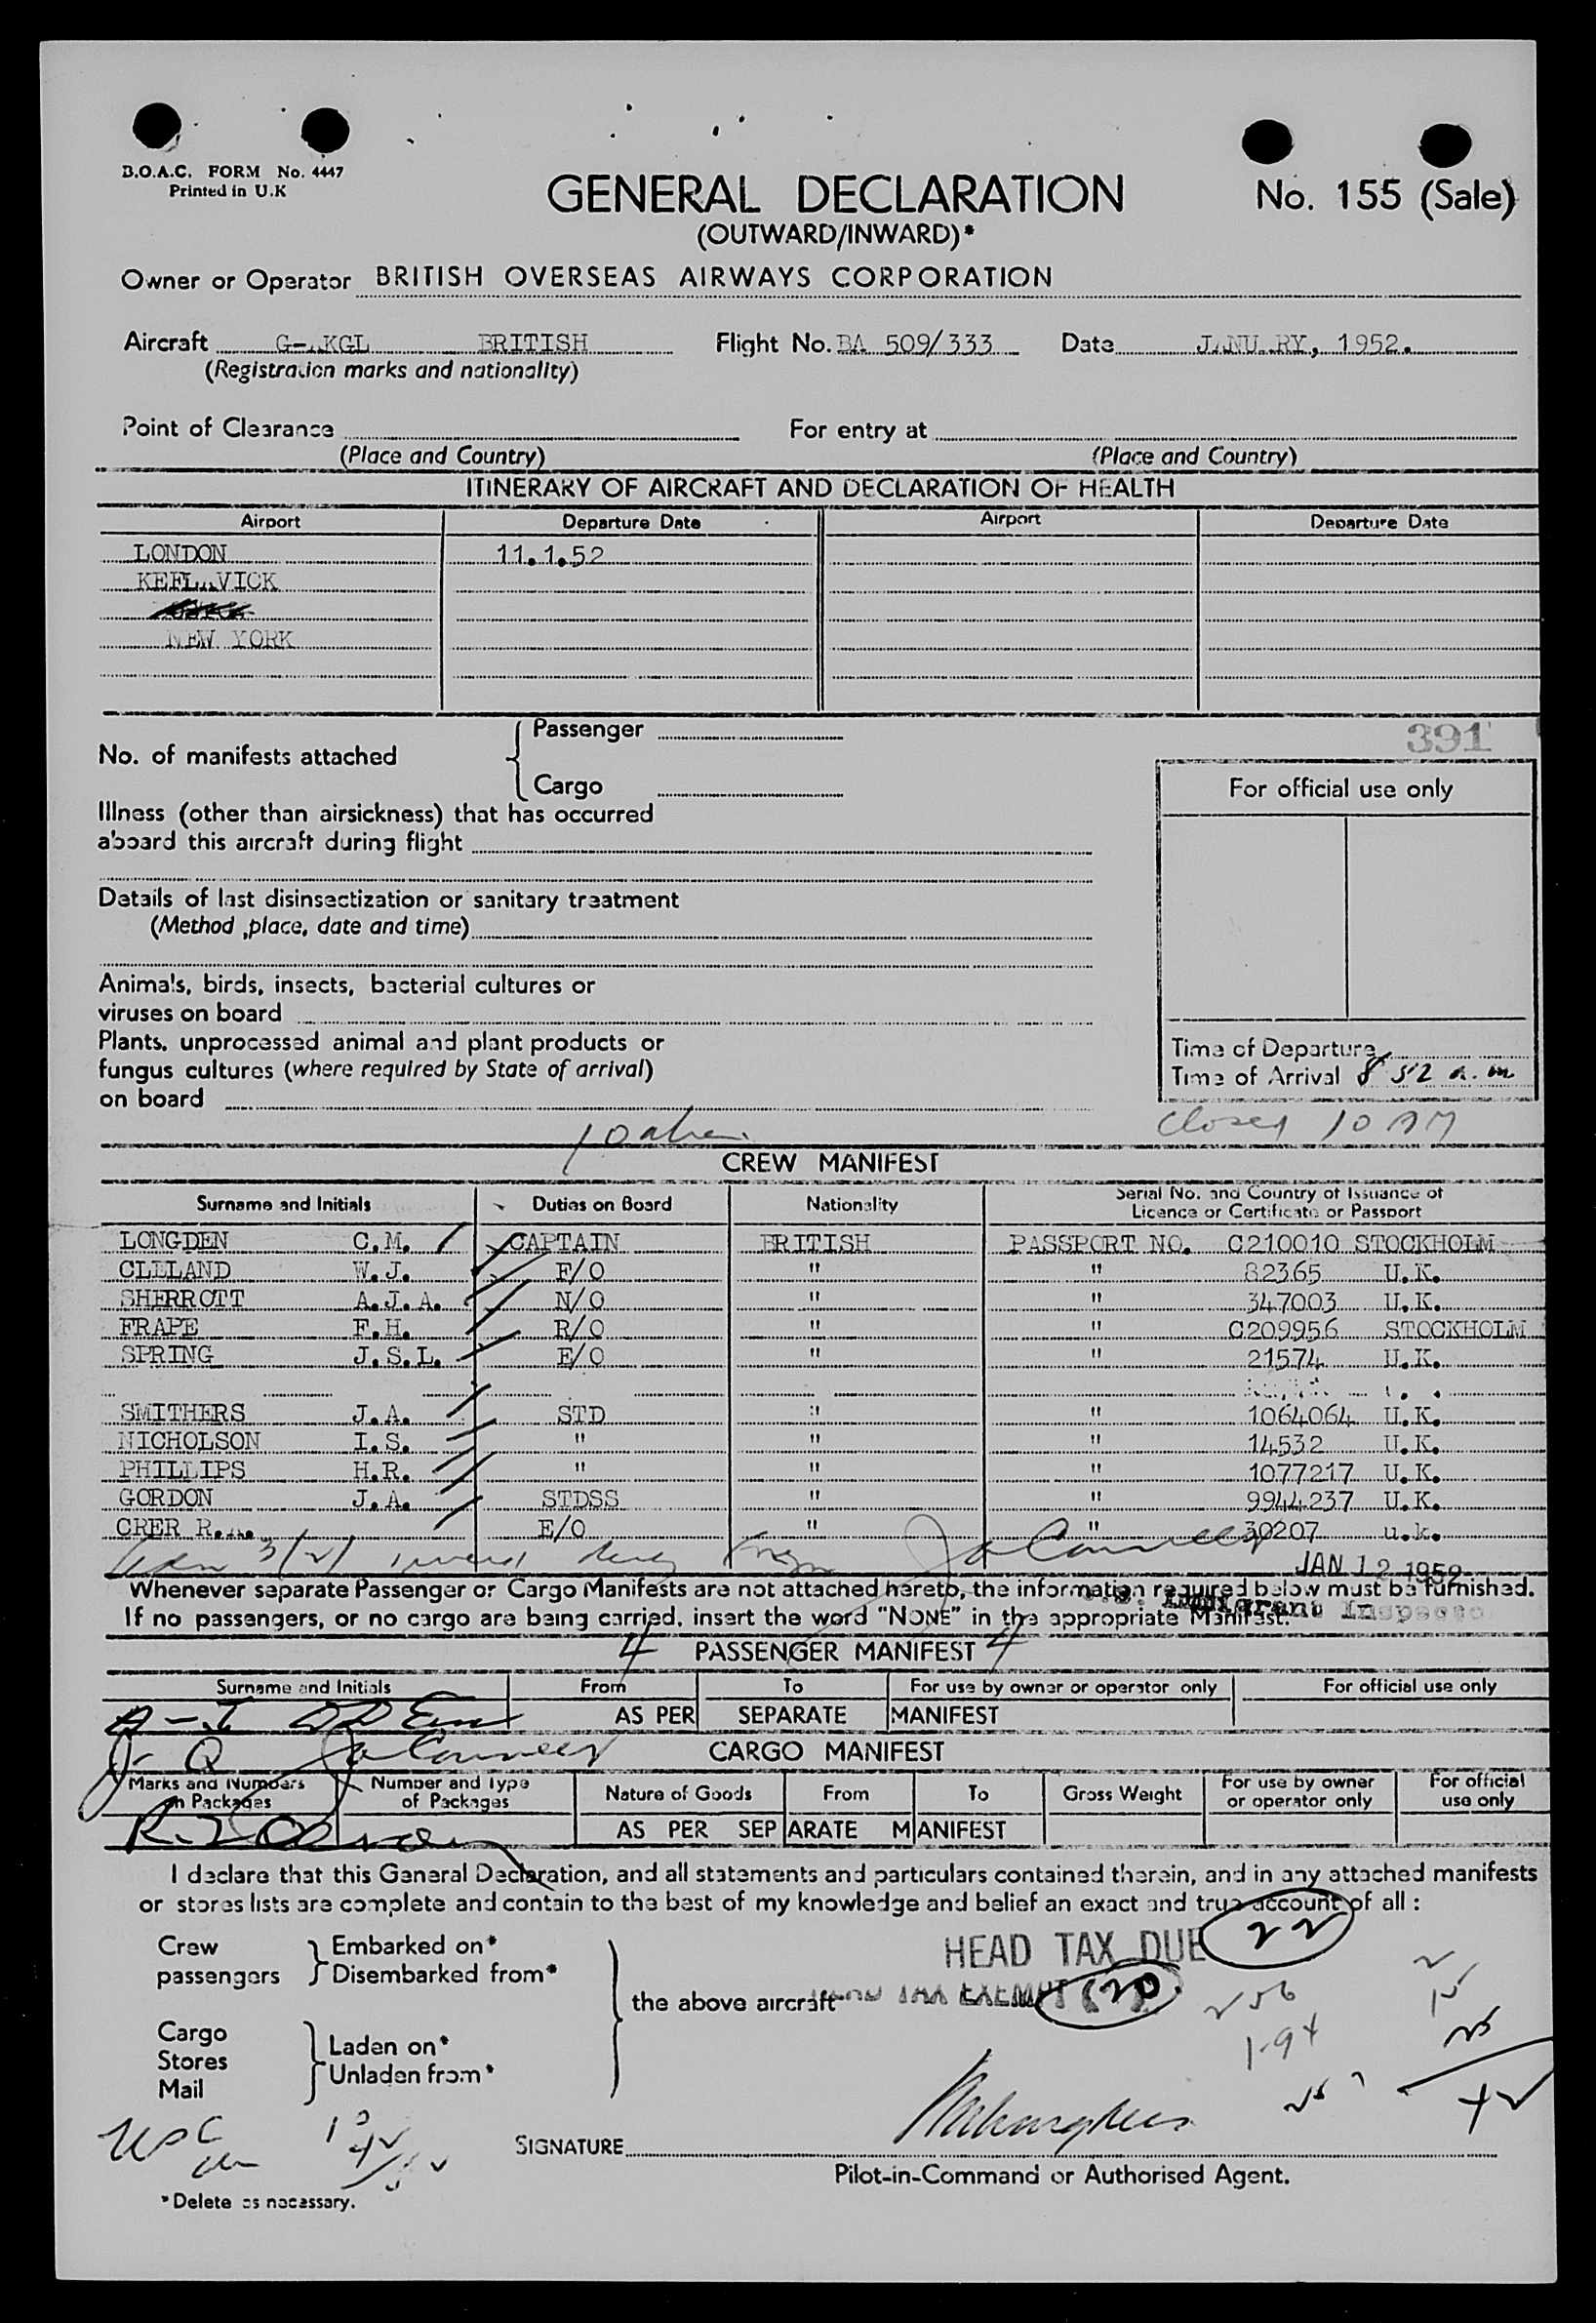 B.O.A.C. FORM No. 4447
Printed in U.K
GENERAL DECLARATION
No. 155 (Sale)
(OUTWARD/INWARD)*
Owner or Operator BRITISH OVERSEAS AIRWAYS CORPORATION
Aircraft G-AKGL BRITISH Flight No. BA 509/333 Date JANUARY, 1952.
(Registration marks and nationality)
Point of Clearance For entry at
(Place and Country) (Place and Country)
ITINERARY OF AIRCRAFT AND DECLARATION OF HEALTH
Airport Departure Date Airport Departure Date
LONDON 11.1.52
KEFLAVICK
NEW YORK
Passenger
391
No. of manifests attached
Cargo
For official use only
Illness (other than airsickness) that has occurred
aboard this aircraft during flight
Details of last disinsectization or sanitary treatment
(Method ,place, date and time)
Animals, birds, insects, bacterial cultures or
viruses on board
Plants, unprocessed animal and plant products or
fungus cultures (where required by State of arrival)
on board
Time of Departure
Time of Arrival 8 52 a.m
Closed 10 AM
CREW MANIFEST
Surname and Initials Duties on Board Nationality Serial No. and Country of Issuance of
Licence or Certificate or Passport
LONGDEN C.M. CAPTAIN BRITISH PASSPORT NO. C210010 STOCKHOLM
CLELAND W.J. F/O " " 82365 U.K.
SHERROTT A.J.A. N/O " " 347003 U.K.
FRAPE F.H. R/O " " C209956 STOCKHOLM
SPRING J.S.L. E/O " " 21574 U.K.
SMITHERS J.A. STD " " 1064064 U.K.
NICHOLSON I.S. " " " 14532 U.K.
PHILLIPS H.R. " " " 1077217 U.K.
GORDON J.A. STDSS " " 9944237 U.K.
CRER R.A. E/O " " 30207 u.k.
JAN 12 1952
Whenever separate Passenger or Cargo Manifests are not attached hereto, the information required below must be furnished.
If no passengers, or no cargo are being carried, insert the word "NONE" in the appropriate Manifest.
U.S. Immigrant Inspector
4 PASSENGER MANIFEST 4
Surname and Initials From To For use by owner or operator only For official use only
AS PER SEPARATE MANIFEST
CARGO MANIFEST
Marks and Numbers
on Packages
Number and Type
of Packages
Nature of Goods From To Gross Weight
For use by owner
or operator only
For official
use only
AS PER SEPARATE MANIFEST
I declare that this General Declaration, and all statements and particulars contained therein, and in any attached manifests
or stores lists are complete and contain to the best of my knowledge and belief an exact and true account of all :
Crew
passengers
Embarked on*
Disembarked from*
the above aircraft
HEAD TAX DUE 22
HEAD TAX EXEMPT 20
Cargo
Stores
Mail
Laden on*
Unladen from*
SIGNATURE
Pilot-in-Command or Authorised Agent.
*Delete as necessary.